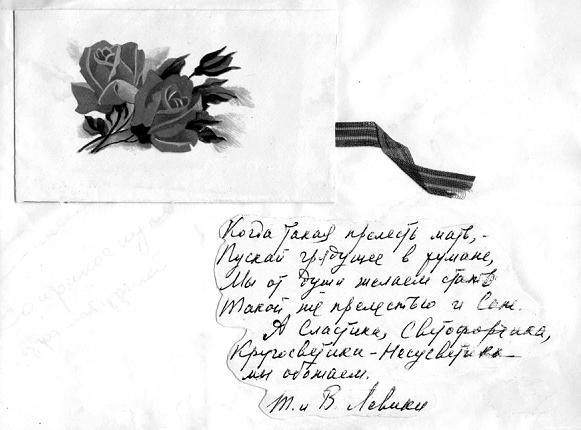 Когда такая прелесть мать, -
Пускай грядущее в тумане,
Мы от души желаем стать
Такой же прелестью и Сане.
А Сластика, Светофорчика,
Кругосветика - Несусветика
мы обожаем.
Т. и В. Левики